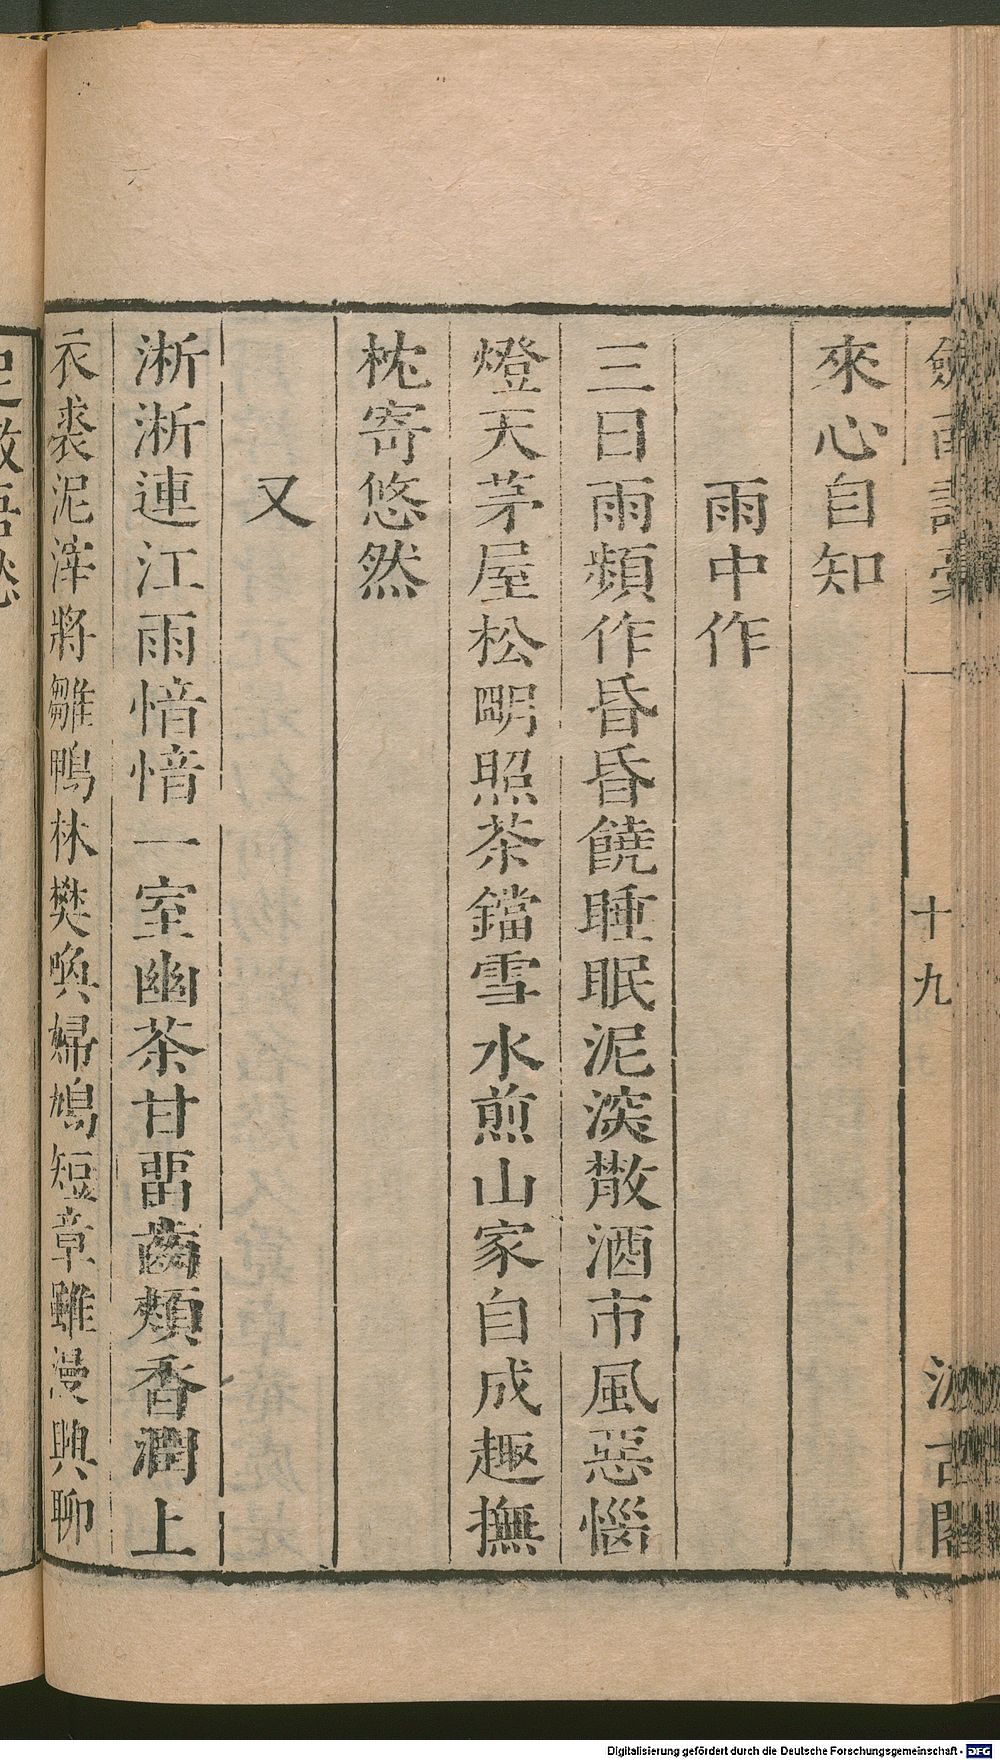 劍南詩稾
十九
汲古閣
來心自知
雨中作
三日雨頻作昏昏饒睡眠泥深散酒市風惡惱
燈天茅屋松明照茶鐺雪水煎山家自成趣撫
枕寄悠然
又
淅淅連江雨愔愔一室幽茶甘留齒頰香潤上
衣裘泥濘將雛鴨林樊喚婦鳩短章雖漫興聊
足散吾愁
Digitalisierung gefördert durch die Deutsche Forschungsgemeinschaft - DFG